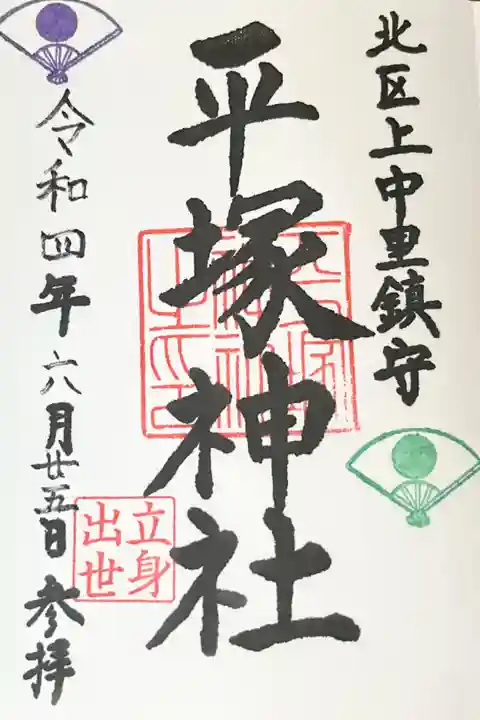 北区上中里鎮守
平塚神社
令和四年六月廿五日参拝
立身
出世